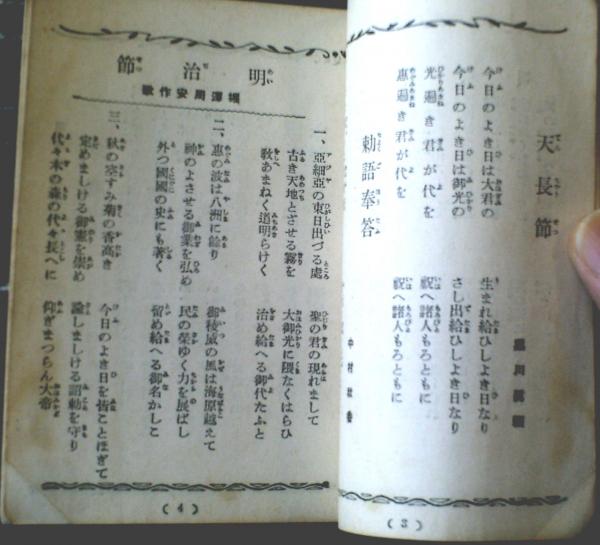 天長節
黒川眞頼
今日のよき日は大君の 生まれ給ひしよき日なり
今日のよき日は御光の さし出給ひしよき日なり
光遍き君が代を 祝へ諸人もろともに
惠遍き君が代を 祝へ諸人もろともに
勅語奉答
中村秋香
(3)
明治節
堀澤周安作歌
一、亞細亞の東日出づる處 聖の君の現れまして
古き天地とざせる霧を 大御光に隈なくはらひ
敎あまねく道明らけく 治め給へる御代たふと
二、惠の波は八洲に餘り 御稜威の風は海原越えて
神のよさせる御業を弘め 民の榮ゆく力を展ばし
外つ國國の史にも著く 留め給へる御名かしこ
三、秋の空すみ菊の香高き 今日のよき日を皆ことほぎて
定めましける御憲を崇め 諭しましける詔勅を守り
代々木の森の代々長へに 仰ぎまつらん大帝
(4)